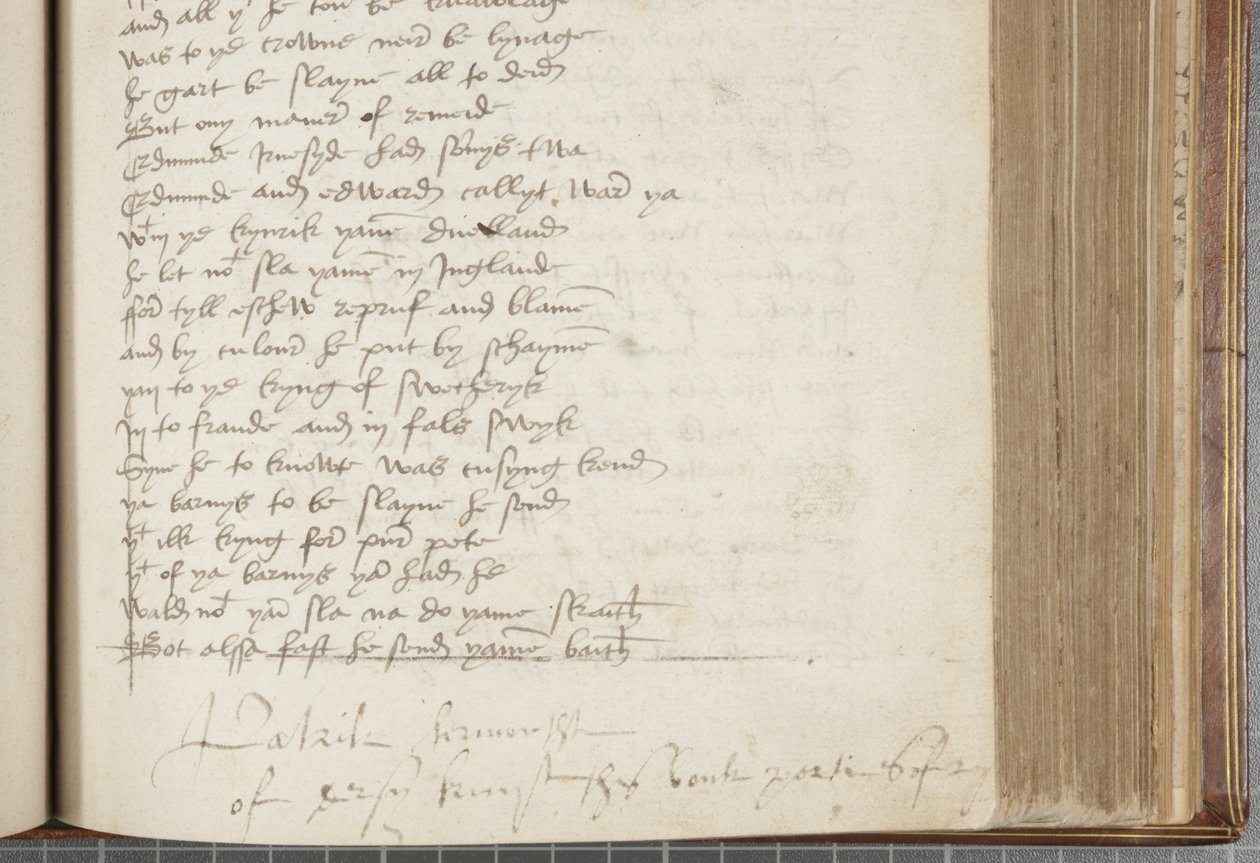 and all yt he cou be knawlage
was to ye crowne neir be lynage
he gart be slayne all to deid
But ony maner of remeide
Edmunde Irnesyde had sonnys twa
Edmunde and edward callyt war ya
wtin ye kynrik yame duelland
he let not sla yame in Inglande
ffor tyll eschew repruf and blame
and by culour he put by schayme
yan to ye kyng of swetheryk
In to fraude and in fals swyk
Syne he to knowte was cusyng kend
ya barnys to be slayne he send
yt ilk kyng for pur pete
yt of ya barnys yan had he
wald not yam sla na do yame skaith
Bot alssa fast he send yame baith
Patrik
of kny this bouk